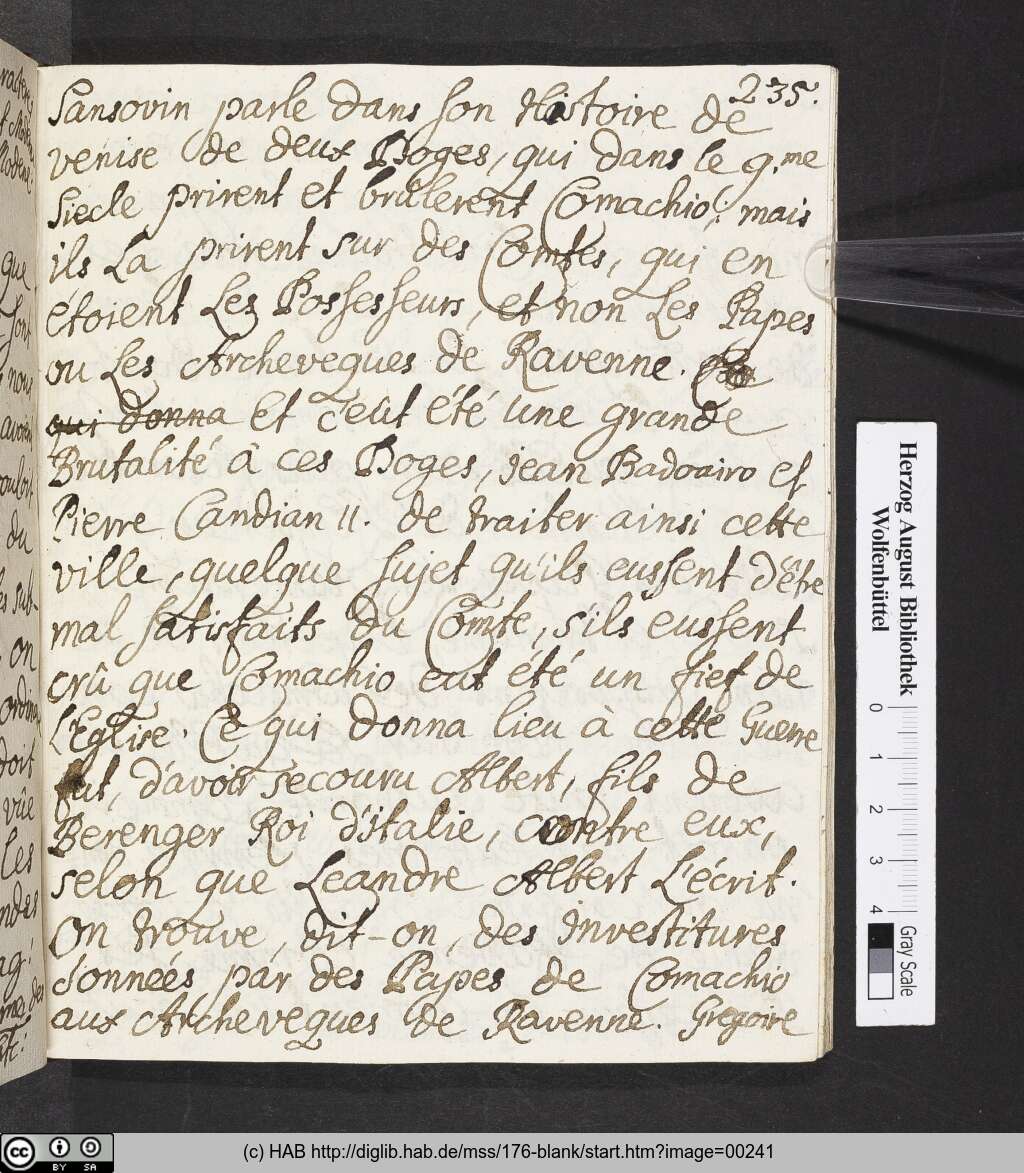 235.
Sansovin parle dans son Histoire de
venise de deux Doges, qui dans le 9.me
Siecle prirent et brûlerent Comachio; mais
ils La prirent sur des Comtes, qui en
étoient Les Possesseurs, et non Les Papes
ou Les Archeveques de Ravenne. Ce
qui donna et c'eût été une grande
Brutalité à ces Doges, jean Badoairo et
Pierre Candian II. de traiter ainsi cette
ville, quelque sujet qu'ils eussent d'être
mal satisfaits du Comte, s'ils eussent
crû que Comachio eut été un fief de
L'Eglise. Ce qui donna lieu à cette Guerre
fut, d'avoir secouru Albert, fils de
Berenger Roi d'italie, contre eux,
selon que Leandre Albert L'écrit.
On trouve, dit-on, des investitures
données par des Papes de Comachio
aux Archeveques de Ravenne. Gregoire
que
sont
nous
du
on
doit
vûe
les
Herzog August Bibliothek
Wolfenbüttel
0 1 2 3 4
Gray Scale
cc BY SA
(c) HAB http://diglib.hab.de/mss/176-blank/start.htm?image=00241